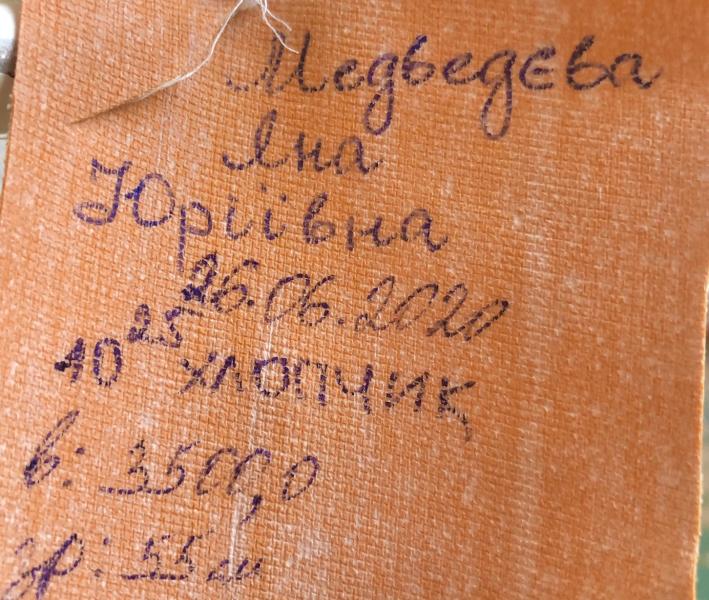 Медведєва
Яна
Юріївна
26.06.2020
10²⁵ хлопчик
в: 3500,0
зр: 55 см